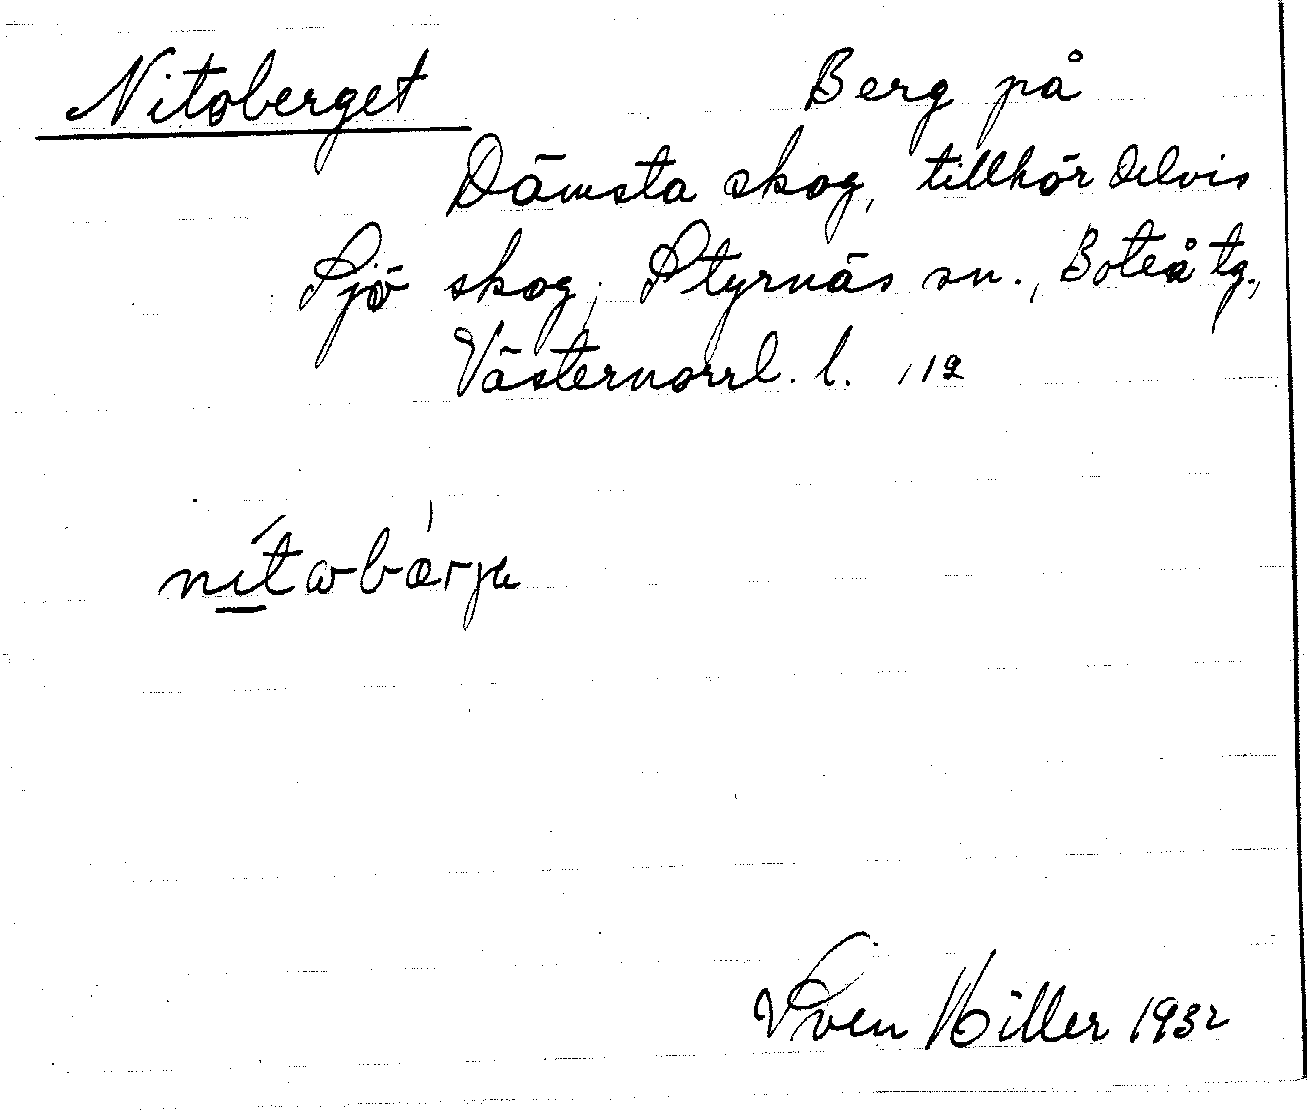 Nitoberget Berg på
Dämsta skog, tillhör delvis
Sjö skog; Styrnäs sn., Boteå tg.,
Västernorrl. l. 112
Sven Hiller 1932